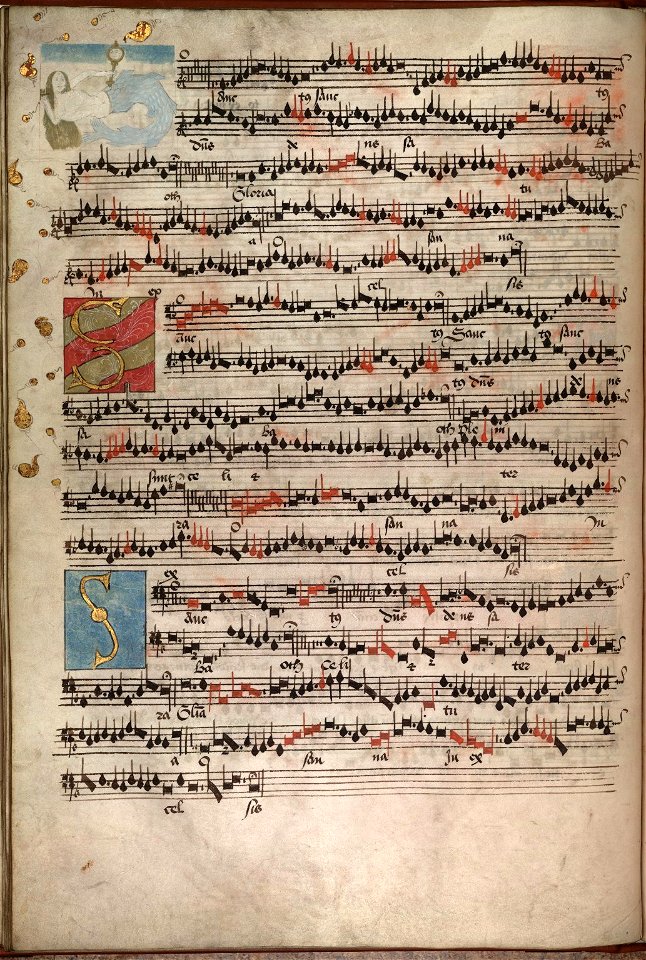 O
anc tꝰ sanc tꝰ
dn̄s de ns sa Ba
oth Gloria tu
a O san na
In ex cel sis
S O
anc tꝰ Sanc tꝰ sanc
tꝰ dn̄s de ns
sa Ba oth Ple ni
sunt ce li & ter
ra O san na In
ex cel sis
S
anc tꝰ dn̄s de ns sa
Ba oth Ce li & ter
ra Gl̄ia tu
a O san na In ex
cel sis